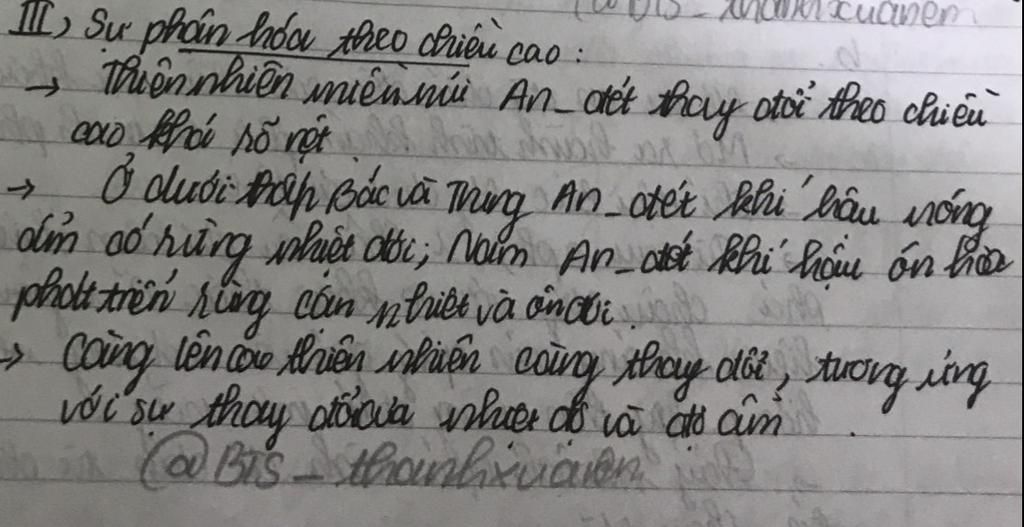 (@BTS - thanhxuanem
III) Sự phân hóa theo chiều cao:
→ Thiên nhiên miền núi An_đét thay đổi theo chiều
cao khá rõ rệt
→ Ở dưới thấp Bắc và Trung An_đét khí hậu nóng
ẩm có rừng nhiệt đới; Nam An_đét khí hậu ôn hòa
phát triển rừng cận nhiệt và ôn đới.
→ Càng lên cao thiên nhiên càng thay đổi, tương ứng
với sự thay đổi của nhiệt độ và độ ẩm.
(@BTS - thanhxuanem